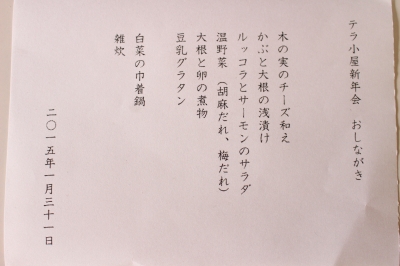 テラ小屋新年会　おしながき
木の実のチーズ和え
かぶと大根の浅漬け
ルッコラとサーモンのサラダ
温野菜（胡麻だれ、梅だれ）
大根と卵の煮物
豆乳グラタン
白菜の巾着鍋
雑炊
二〇一五年一月三十一日